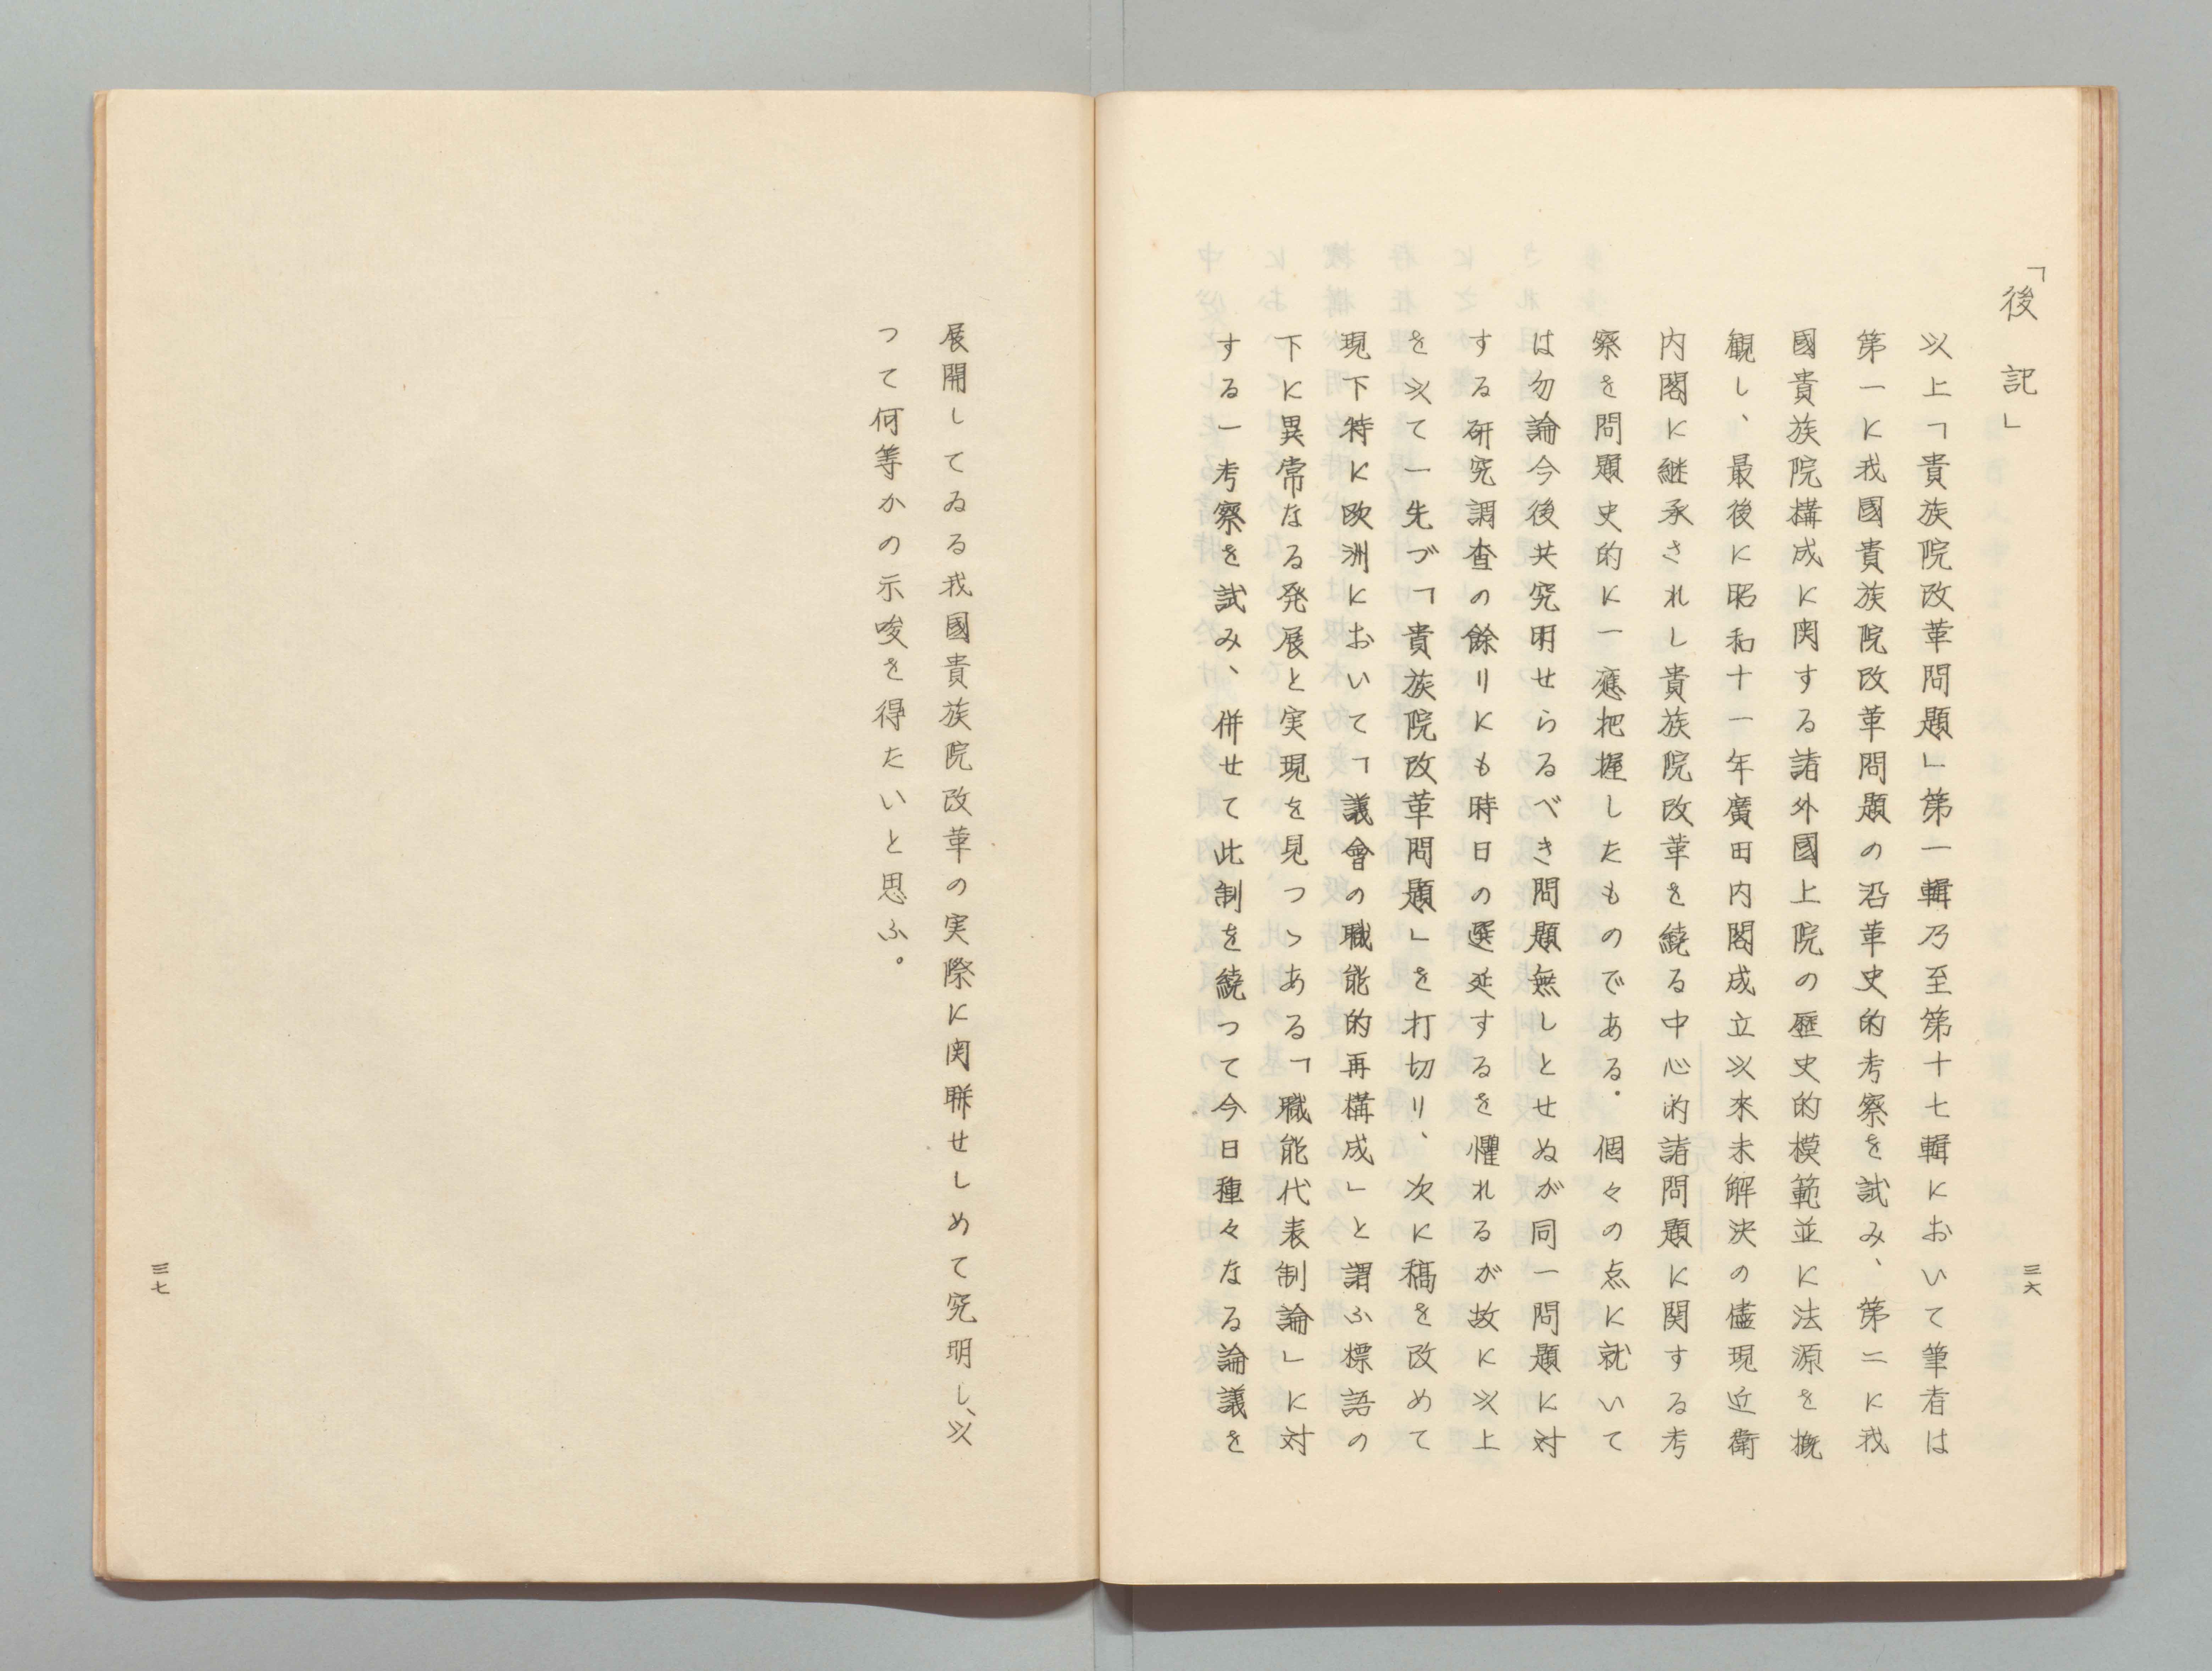 「後記」
以上「貴族院改革問題」第一輯乃至第十七輯において筆者は
第一に我國貴族院改革問題の沿革史的考察を試み、第二に我
國貴族院構成に関する諸外國上院の歴史的模範並に法源を概
観し、最後に昭和十一年廣田内閣成立以來未解決の儘現近衛
内閣に継承されし貴族院改革を繞る中心的諸問題に関する考
察を問題史的に一應把握したものである．個々の点に就いて
は勿論今後共究明せらるべき問題無しとせぬが同一問題に対
する研究調査の餘りにも時日の遷延するを懼れるが故に以上
を以て一先づ「貴族院改革問題」を打切り、次に稿を改めて
現下特に欧洲において「議會の職能的再構成」と謂ふ標語の
下に異常なる発展と実現を見つゝある「職能代表制論」に対
する一考察を試み、併せて此制を繞つて今日種々なる論議を
三六
展開してゐる我國貴族院改革の実際に関聯せしめて究明し、以
つて何等かの示唆を得たいと思ふ。
三七